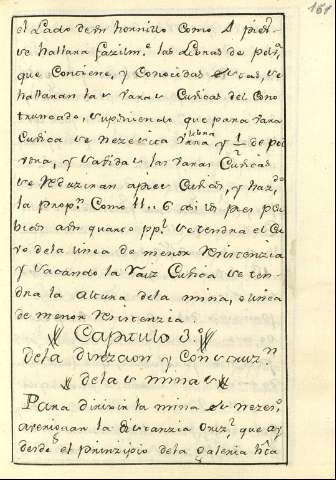 161
el Lado de un hornillo como 1 pie, 
se hallara fazilm.te las Libras de polv.ª
que Contiene, y Conocidas estas, se
hallaran la s varas Cubicas del Cono
truncado, supiniendo que para vara
Cubica se nezesita 1 libra y 1/2 de pol
vora, y sabidas las varas Cubicas
se Reduziran a pies Cubicos, y haz.do
la prop.n Como 11..6 asi los pies
un quarto pp.l se tendra el Cu
vo dela linea de menor Resistenzia
y sacando la Raiz Cubica se ten
dra la altura dela mina, o linea
de menor Resistenzia
Capitulo 3.º
dela direzcion y Construz.n
dela s minas
Para dirixir la mina es nezes.º
averiguan la distanzia oriz.l que ay
desde el prinzipio dela galeria hta